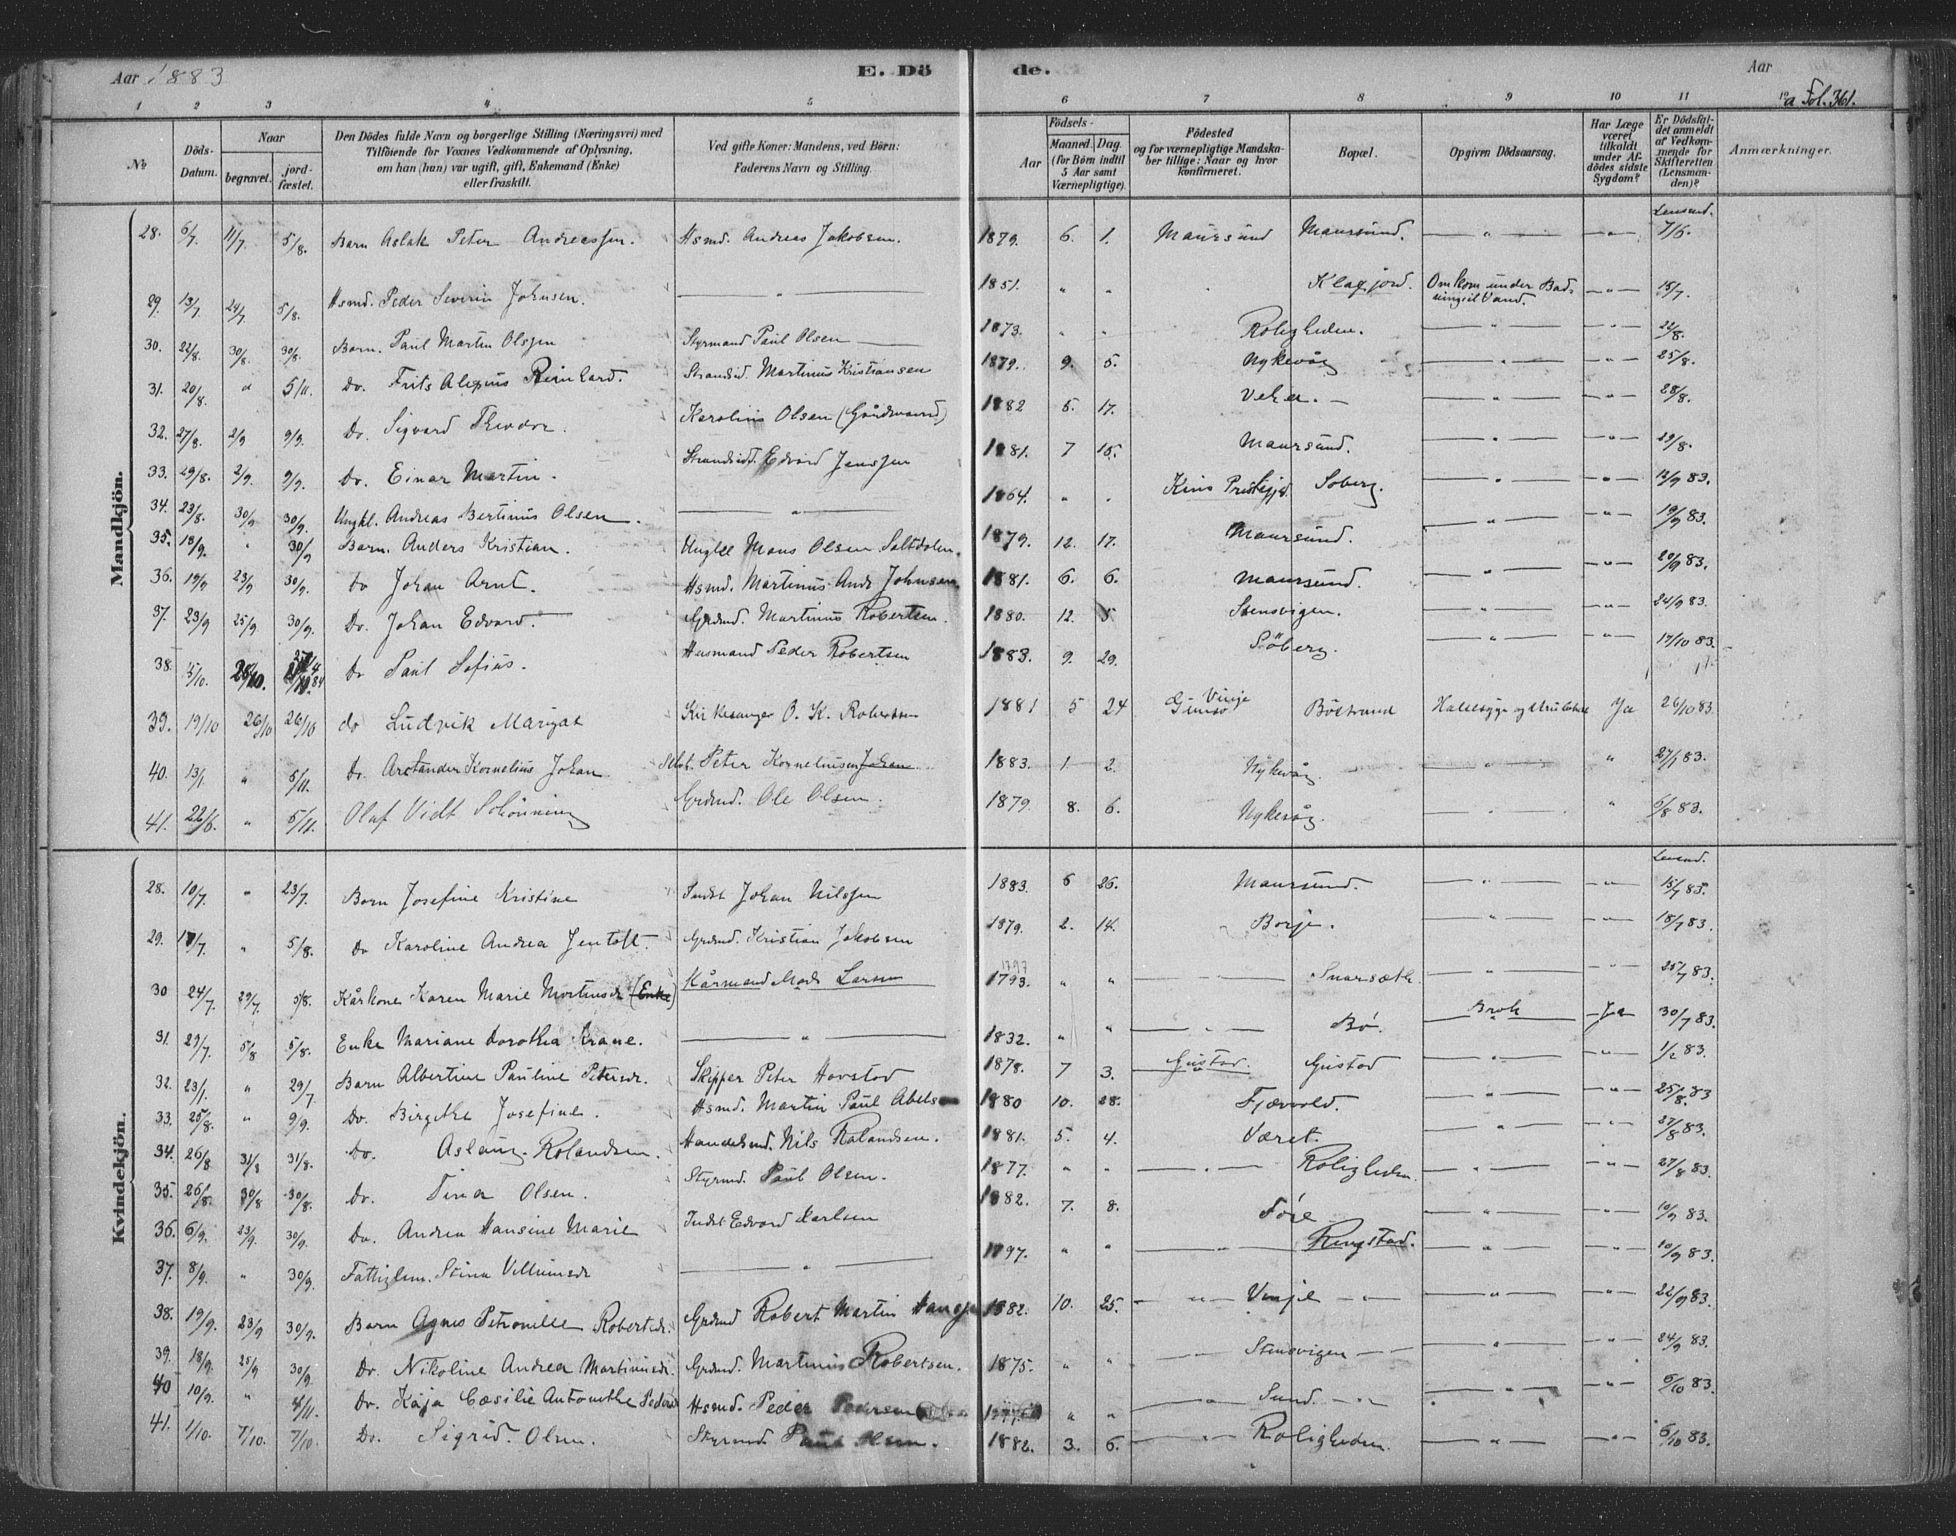 Aar 1883 E. Döde. Aar
a Fol. 361.
1 2 3 4 5 6 7 8 9 10 11 12
No Döds-Datum. Naar begravet. jordfæstet. Den Dödes fulde Navn og borgerlige Stilling (Næringsvei) med Tilföiende for Voxnes Vedkommende af Oplysning, om han (hun) var ugift, gift, Enkemand (Enke) eller fraskilt. Ved gifte Koner: Mandens, ved Börn: Faderens Navn og Stilling. Aar Födsels- Maaned. Dag. (for Börn indtil 5 Aar samt Værnepligtige). Födested og for værnepligtige Mandskaber tillige: Naar og hvor konfirmeret. Bopæl. Opgiven Dödsaarsag. Har Læge været tilkaldt under Afdödes sidste Sygdom? Er Dödsfaldet anmeldt af Vedkommende for Skifteretten (Lensmanden)? Anmærkninger.
Mandkjön.
28. 6/7 11/7 5/8. Barn Aslak Peter Andreassen. Hsmd. Andreas Jakobsen. 1879. 6. 1. Maursund Maursund. — " — — " — Lensmd. 7/6.
29. 13/7 24/7 5/8. Hsmd. Peder Severin Johnsen. — " — 1851. " " Klagfjord. Omkom under Badning i Vand. — " — 15/7.
30. 22/8. 30/8. 30/8. Barn. Paul Martin Olssen Styrmand Paul Olsen — 1873. " " Roligheden. — " — — " — 22/8.
31. 20/8. " 5/11. Do. Frits Alexius Reinhard. Strandsid. Martinus Kristiansen 1879. 9. 5. Nykevåg — " — — " — 25/8.
32. 27/8. 2/9 9/9. Do. Sigvard Theodor. Karolius Olsen (Gårdmand) 1882 5. 17. Veka. — — " — — " — 28/8.
33. 29/8. 2/9. 9/9. Do. Einar Martin. Strandsidd. Edvard Jenssen 1881. 7 15. Maursund. — " — — " — 29/8.
34. 23/8. 30/9 30/9. Ungkl. Andreas Bertinus Olsen. — " — 1864. " " Kins Prestegjd. Soberg. — " — — " — 12/9 83.
35. 18/9. " 30/9 Barn. Anders Kristian. Ungkl Mons Olsen Saltdalen. 1879. 12. 17. Maursund. — " — — " — 19/9 83.
36. 19/9 23/9 30/9. Do Johan Arnt. Hsmd. Martinus Andr. Johnsen 1881. 6. 6. Maursund. — " — — " — 20/9 83.
37. 23/9 25/9 30/9. Do. Johan Edvard. Grdmd. Martinus Robertsen. 1880. 12. 5 Stensvigen. — " — — " — 24/9 83.
38 5/10. 28/10. Do Paul Sofius. Husmand Peder Robertsen 1883. 9. 29. Söberg. — " — — " — 17/10 83.
39. 19/10 26/10 26/10 do Ludvik Kirkesanger O. K. Robertsen 1881 5 24 Vinje Gimsö Böstrand Halsesyge og Ja 26/10 83.
40. 13/1 " 5/11. Do. Arctander Kornelius Johan Peter Korneliussen 1883. 1 2. Nykvåg. — " — " 27/1 83.
41. 22/6. " 5/11. Olaf Vidt Schönning Grdmd. Ole Olsen. 1879. 8. 6. Nykvåg. — " — " 6/8 83.
Kvindekjön.
28. 10/7. " 23/7. Barn Josefine Kristine Indst Johan Nilssen 1883. 6 26. Maursund. — " — — " — Lensmd. 15/7 83.
29. 17/7 " 5/8. Do Karoline Andrea Jentoft. Grdmd. Kristian Jakobsen 1879. 2. 14. Borje. — " — — " — 18/7 83.
30 24/7. 29/7. 5/8. Kårkone Karen Marie Mortensdr (Enke) Kårmand Mads Larsen 1797 1793. " " — " — Snarsæth. — " — — " — 25/7 83.
31. 29/7. 5/8 5/8. Enke Mariane Dorothea Krane. — " — 1832. " " — " — Bö. Brok Ja 30/7 83.
32. 23/1. " 29/7 Barn Albertine Pauline Petersdr. Skipper Peter Hovstad 1878. 7 3. Gustad. Gustad — " — — " — 1/2 83.
33. 25/8. " 9/9. Do. Birgithe Josefine. Hsmd. Martin Paul Abelsen 1880 10. 28. Fjærvold. — " — — " — 25/8. 83
34. 26/8 31/8 31/8. Do. Aslaug Rolandsen. Handelsmd. Nils Rolandsen. 1881. 5. 4. Været. — " — — " — 27/8 83.
35. 26/8. 30/8 30/8. Do. Tina Olsen. Styrmd. Paul Olsen. 1877. " " — " — Roligheden. — " — — " — 27/8 83.
36. 6/9. 23/9. 30/9. Do. Andrea Hansine Marie Indst Edvard Karlsen 1882. 7. 8. Före — " — — " — 10/9 83.
37. 8/9. " 30/9. Fattiglem. Stina Villumsdr — " — 1797. " " — " — Ringstad. — " — — " — 10/9 83.
38. 19/9. 23/9 30/9. Barn Agnes Petronelle Robertsdr. Grdmd Robert Martin 1882. 10. 25. — " — Vinje — " — — " — — " — 22/9 83.
39. 18/9. 25/9 30/9. Do. Nikoline Andrea Martinusdr. Grdmd. Martinus Robertsen. 1875. " " Stensvigen — " — — " — — " — 24/9 83.
40 10/9. " 4/11. Do. Kaja Cæsilie Antonethe Pedersd Hsmd. Peder Pedersen " " — " — Sund. — " — — " — 5/10 83.
41. 1/10. 7/10. 7/10. Do. Sigrid. Olsen. Styrmd. Paul Olsen. 1882. 3. 6. — " — Roligheden. — " — — " — 6/10 83.